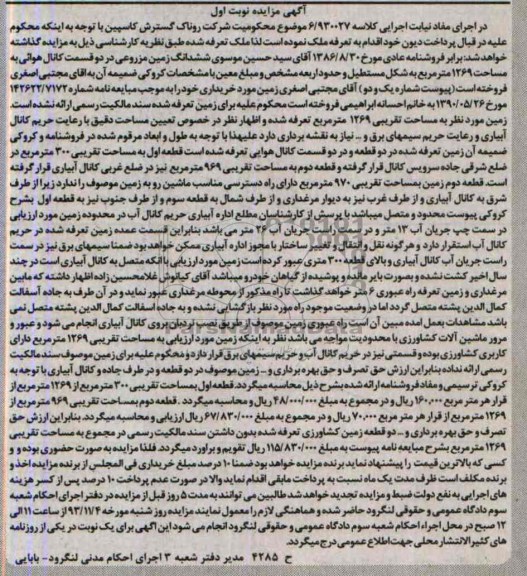 آگهی مزایده نوبت اول
در اجرای مفاد نیابت اجرایی کلاسه ۶/۹۳۰۰۲۷ موضوع محکومیت شرکت روناک گسترش کاسپین با توجه به اینکه محکوم
علیه در قبال پرداخت دیون خود اقدام به تعرفه ملک نموده است لذا ملک تعرفه شده طبق نظریه کارشناسی ذیل به مزایده گذاشته
خواهد شد: برابر فروشنامه عادی مورخ ۱۳۸۶/۸/۳۰ آقای سید حسین موسوی ششدانگ زمین مزروعی در دو قسمت کانال هوائی به
مساحت ۱۲۶۹ متر مربع به شکل مستطیل و حدود اربعه مشخص و مبلغ معین با مشخصات کروکی ضمیمه آن به اقای مجتبی اصغری
فروخته است (پیوست شماره یک و دو) آقای مجتبی اصغری زمین مورد خریداری خود را به موجب مبایعه نامه شماره ۱۴۲۶۲۲/۷۱۷۲
مورخ ۱۳۹۰/۰۵/۲۶ به خانم احسانه ابراهیمی فروخته است محکوم علیه برای زمین تعرفه شده سند مالکیت رسمی ارائه نشده است.
زمین مورد نظر به مساحت تقریبی ۱۲۶۹ مترمربع تعرفه شده و اظهار نظر در خصوص تعیین مساحت دقیق با رعایت حریم کانال
آبیاری و رعایت حریم سیمهای برق و ... نیاز به نقشه برداری دارد علیهذا با توجه به طول و ابعاد مرقوم شده در فروشنامه و کروکی
ضمیمه آن زمین تعرفه شده در دو قطعه و در دو قسمت کانال هوایی تعرفه شده است قطعه اول به مساحت تقریبی ۳۰۰ مترمربع در
ضلع شرقی جاده سرویس کانال قرار گرفته و قطعه دوم به مساحت تقریبی ۹۶۹ مترمربع نیز در ضلع غربی کانال آبیاری قرار گرفته
است. قطعه دوم زمین بمساحت تقریبی ۹۷۰ مترمربع دارای راه دسترسی مناسب ماشین رو به زمین موصوف را ندارد زیرا از طرف
شرق به کانال آبیاری و از طرف غرب نیز به دیوار مرغداری و از طرف شمال به قطعه سوم و از طرف جنوب نیز به قطعه اول بشرح
کروکی پیوست محدود و متصل میباشد با پرسش از کارشناسان مطلع اداره آبیاری حریم کانال آب در محدوده زمین مورد ارزیابی
در سمت چپ جریان آب ۱۳ متر و در سمت راست جریان آب ۲۶ متر می باشد بنابراین قسمت عمده زمین تعرفه شده در حریم
کانال آب استقرار دارد و هرگونه نقل و انتقال و تغییر ساختار با مجوز اداره آبیاری ممکن خواهد بود ضمنا سیمهای برق نیز در سمت
راست جریان آب کانال آبیاری و بالای قطعه ۳۰۰ متری عبور کرده است زمین مورد ارزیابی با آنکه متصل به کانال آبیاری است در چند
سال اخیر کشت نشده و بصورت بایر مانده و پوشیده از گیاهان خودرو میباشد آقای کیانوش غلامحسین زاده اظهار داشته که مابین
مرغداری و زمین تعرفه راه عبوری ۶ متر خواهد گذاشت تا راه مذکور از محوطه مرغداری عبور نماید و در آن طرف به جاده آسفالت
کمال الدین پشته متصل گردد اما در وضعیت موجود راه مورد نظر بازگشایی نشده و به جاده اسفالت کمال الدین پشته متصل نمی
باشد مشاهدات بعمل امده مبین آن است راه عبوری زمین موصوف از طریق نصب نردبان بروی کانال آبیاری انجام می شود و عبور و
مرور ماشین آلات کشاورزی با محدودیت مواجه می باشد نظر به اینکه زمین مورد ارزیابی به مساحت تقریبی ۱۲۶۹ مترمربع دارای
کاربری کشاورزی بوده و قسمتی نیز در حریم کانال آب و حریم سیمهای برق قرار دارد و محکوم علیه برای زمین موصوف سند مالکیت
رسمی ارائه نداده بنابراین ارزش حق تصرف و حق بهره برداری و ... زمین موصوف در دو قطعه و در طرف جاده و کانال آبیاری با توجه به
کروکی ترسیمی و مفاد فروشنامه ارائه شده بشرح ذیل محاسبه میگردد. قطعه اول بمساحت تقریبی ۳۰۰ مترمربع از ۱۲۶۹ مترمربع از
قرار هر متر مربع ۱۶۰,۰۰۰ ریال و در مجموع به مبلغ ۴۸/۰۰۰/۰۰۰ ریال و محاسبه میگردد . قطعه دوم بمساحت تقریبی ۹۶۹ مترمربع از
۱۲۶۹ مترمربع از قرار هر متر مربع ۷۰,۰۰۰ ریال و در مجموع به مبلغ ۶۷/۸۳۰/۰۰۰ ریال ارزیابی و محاسبه میگردد. بنابراین ارزش حق
تصرف و حق بهره برداری و ... دو قطعه زمین کشاورزی تعرفه شده بدون داشتن سند مالکیت رسمی در مجموع به مساحت تقریبی
۱۲۶۹ مترمربع بشرح مبایعه نامه پیوست به مبلغ ۱۱۵/۸۳۰/۰۰۰ ریال تقویم و براورد میگردد. فلذا مزایده به صورت حضوری بوده و و
کسی که بالاترین قیمت را پیشنهاد نماید برنده مزایده خواهد بود ضمنا ۱۰ درصد مبلغ خریداری فی المجلس از برنده مزایده اخذ و
برنده مکلف است ظرف مدت یک ماه نسبت به پرداخت مابقی اقدام نماید والا در صورت عدم پرداخت ۱۰ درصد پس از کسر هزینه
های اجرایی به نفع دولت ضبط و مزایده تجدید خواهد شد طالبین می توانند به مدت ۵ روز قبل از مزایده در دفتر اجرای احکام شعبه
سوم دادگاه عمومی و حقوقی لنگرود حاضر شده و هماهنگی لازم را معمول نمایند مزایده روز شنبه مورخه ۹۳/۱۱/۴ از ساعت ۱۱ الی
۱۲ صبح در محل اجراء احکام شعبه سوم دادگاه عمومی و حقوقی لنگرود انجام می شود این آگهی برای یک نوبت در یکی از روزنامه
های کثیر الانتشار محلی جهت اطلاع عمومی درج میگردد.
ح ۴۲۸۵ مدیر دفتر شعبه ۳ اجرای احکام مدنی لنگرود - بابایی